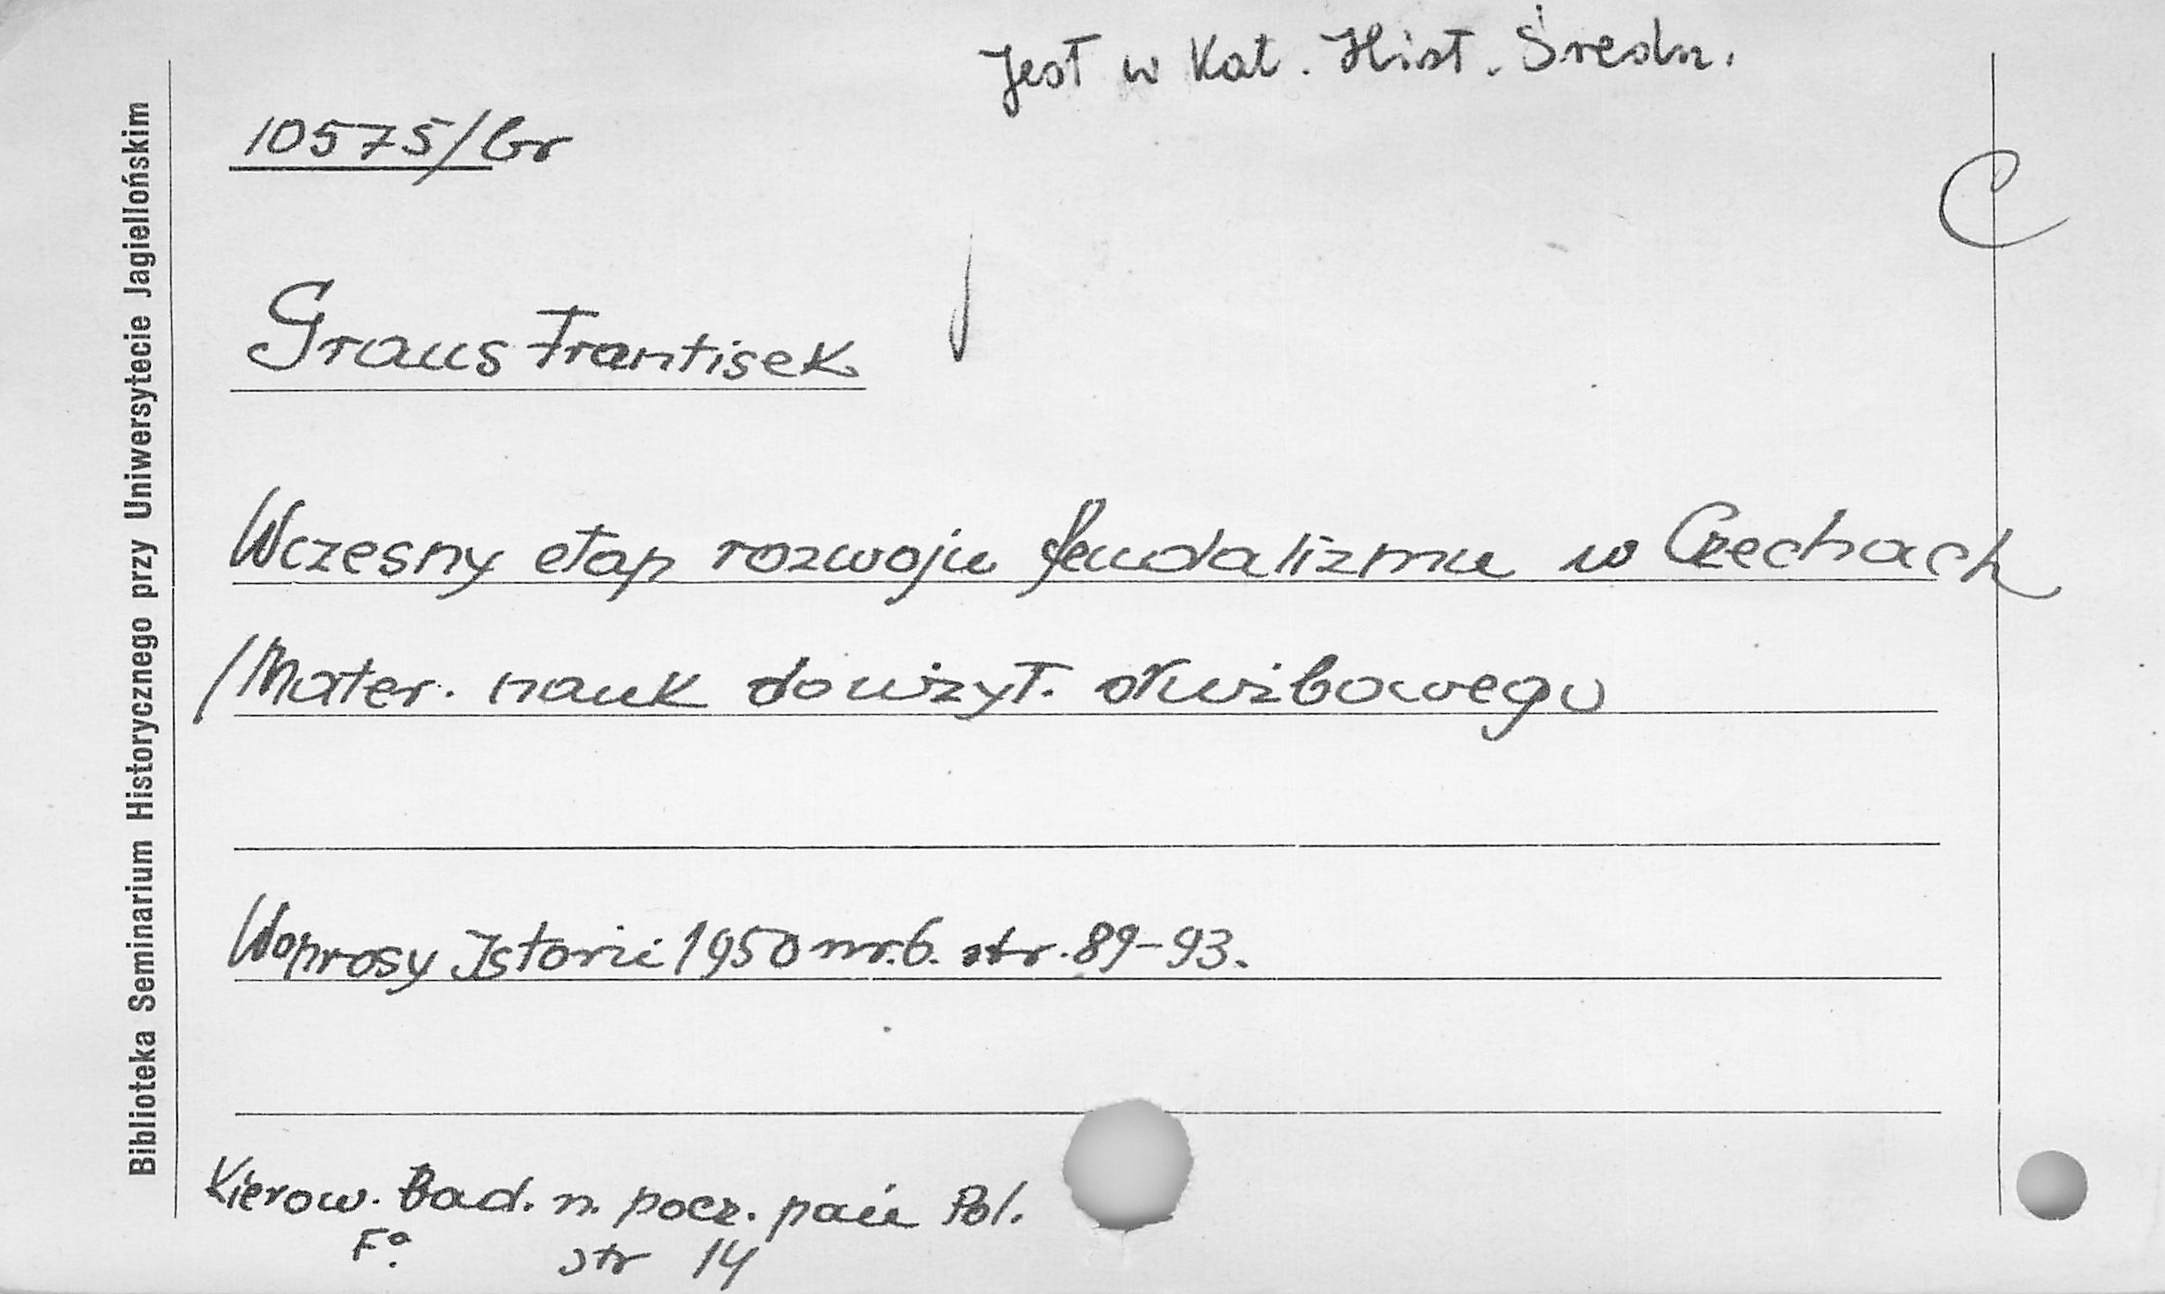 Jest w Kat. Hist. Średn.
10575/br
C
Graus Frantisek
Wczesny etap rozwoju feudalizmu w Czechach
/Mater. nauk do użyt. służbowego
Woprosy Istorii 1950 nr. 6. str. 89-93.
Kierow. Bad. n. pocz. pań Pol.
Fº. str 14
Biblioteka Seminarium Historycznego przy Uniwersytecie Jagiellońskim